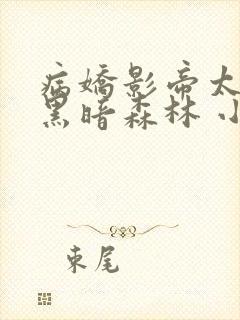 病嬌影帝太
黑暗森林 小
束尾